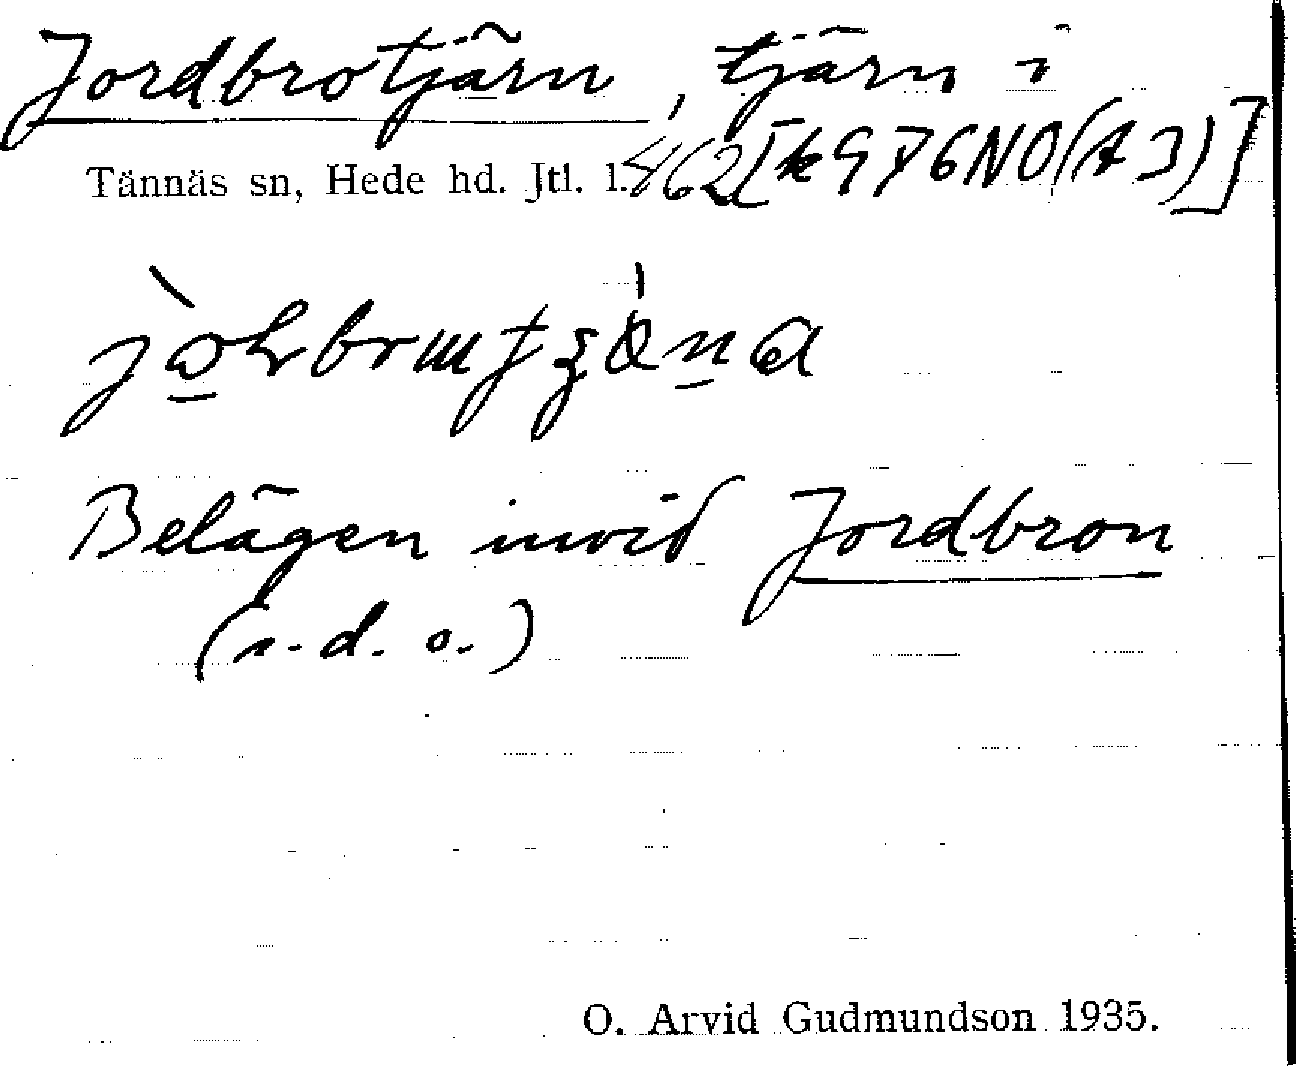 Jordbrotjärn, tjärn i
Tännäs sn, Hede hd. Jtl. l. 462 [k 976NO(A3)]
Belägen invid Jordbron
(s.d.o.)
O. Arvid Gudmundson 1935.